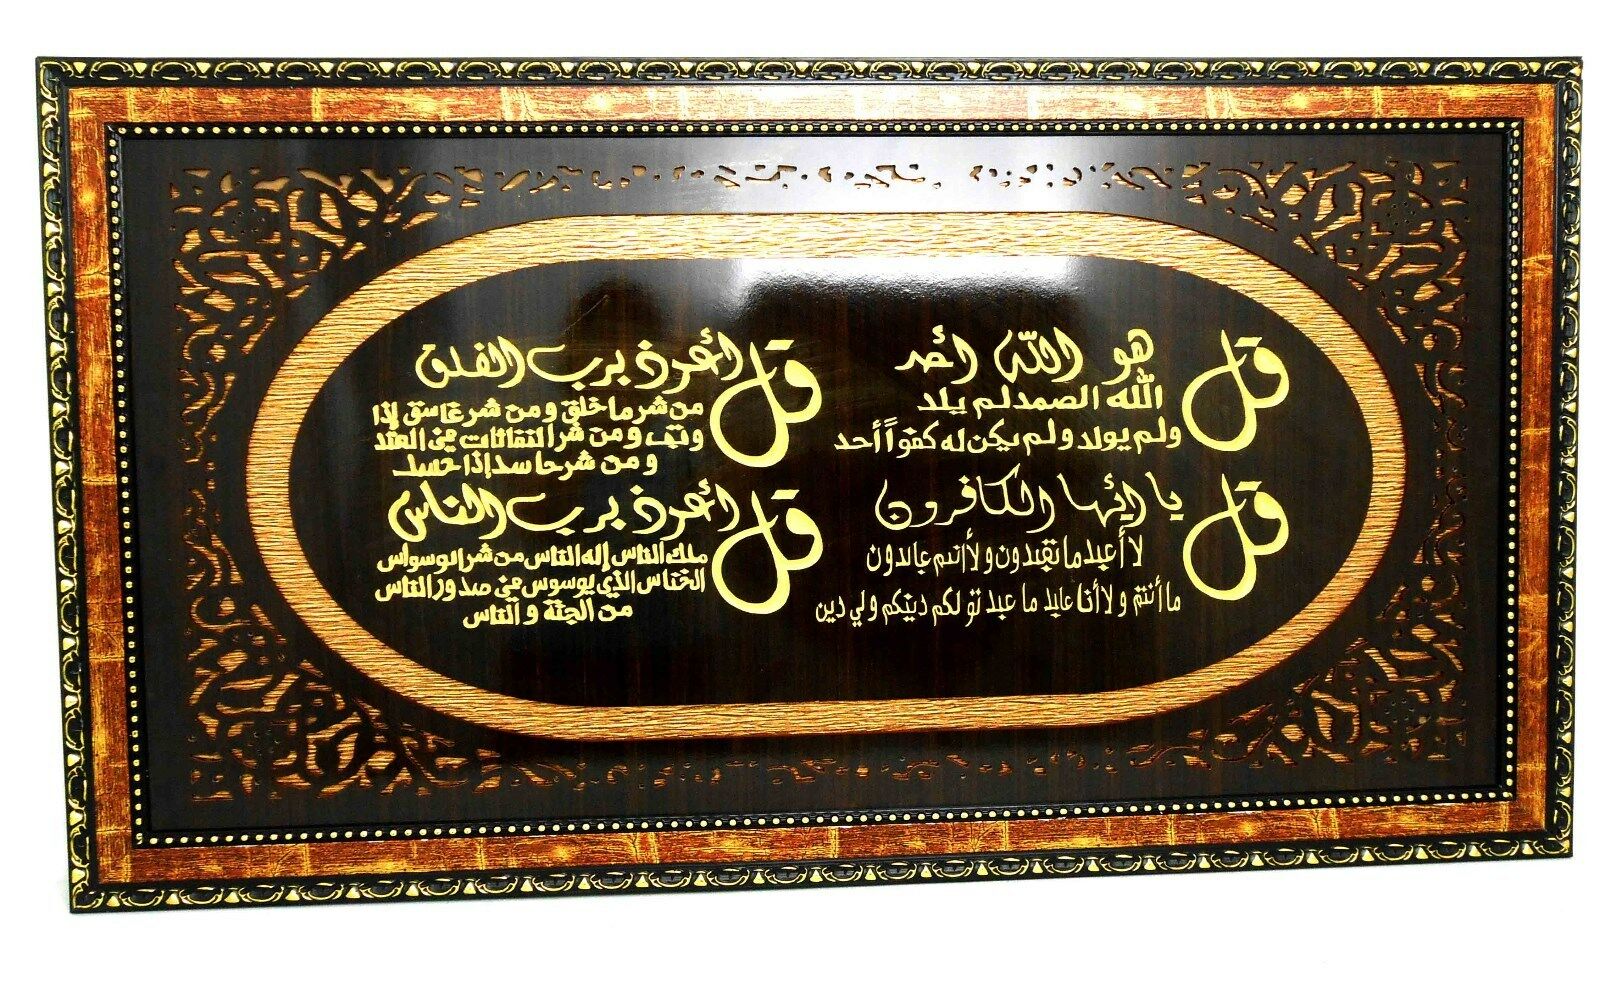 قل هو الله أحد
الله الصمد لم يلد
ولم يولد ولم يكن له كفواً أحد
قل أعوذ برب الفلق
من شر ما خلق ومن شر غاسق إذا
وقب ومن شر النفاثات في العقد
ومن شر حاسد إذا حسد
قل يا أيها الكافرون
لا أعبد ما تعبدون ولا أنتم عابدون
ما أنتم ولا أنا عابد ما عبدتو لكم دينكم ولي دين
قل أعوذ برب الناس
ملك الناس إله الناس من شر الوسواس
الخناس الذي يوسوس في صدور الناس
من الجنة والناس